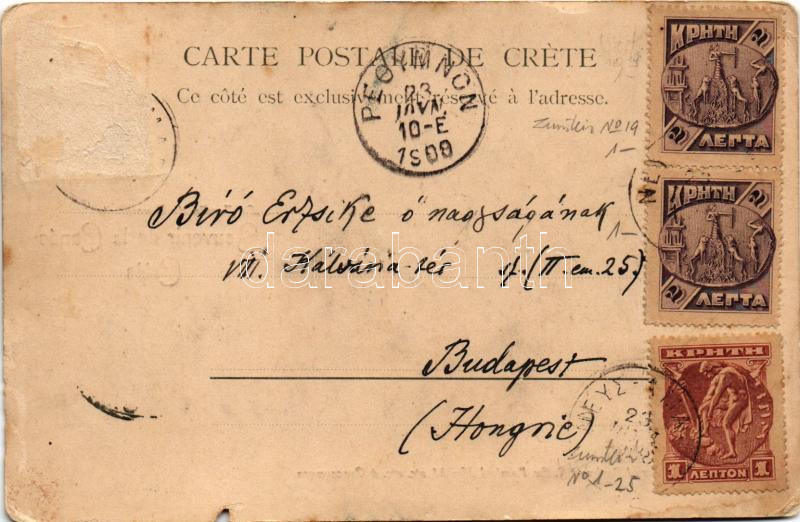 CARTE POSTALE DE CRÈTE
Ce côté est exclusivement réservé à l'adresse.
ΡΕΘΥΜΝΟΝ
23
ΙΟΥΝ
10-Ε
1900
ΚΡΗΤΗ
2 ΛΕΠΤΑ 2
Zumstein No 19
1-
ΚΡΗΤΗ
2 ΛΕΠΤΑ
1-
Bíró Erzsike ő nagyságának
VII. Kálvária-tér (II. em. 25.)
darabanth
Budapest
(Hongrie)
ΚΡΗΤΗ
1 ΛΕΠΤΟΝ 1
23
Zumstein
No 1-25